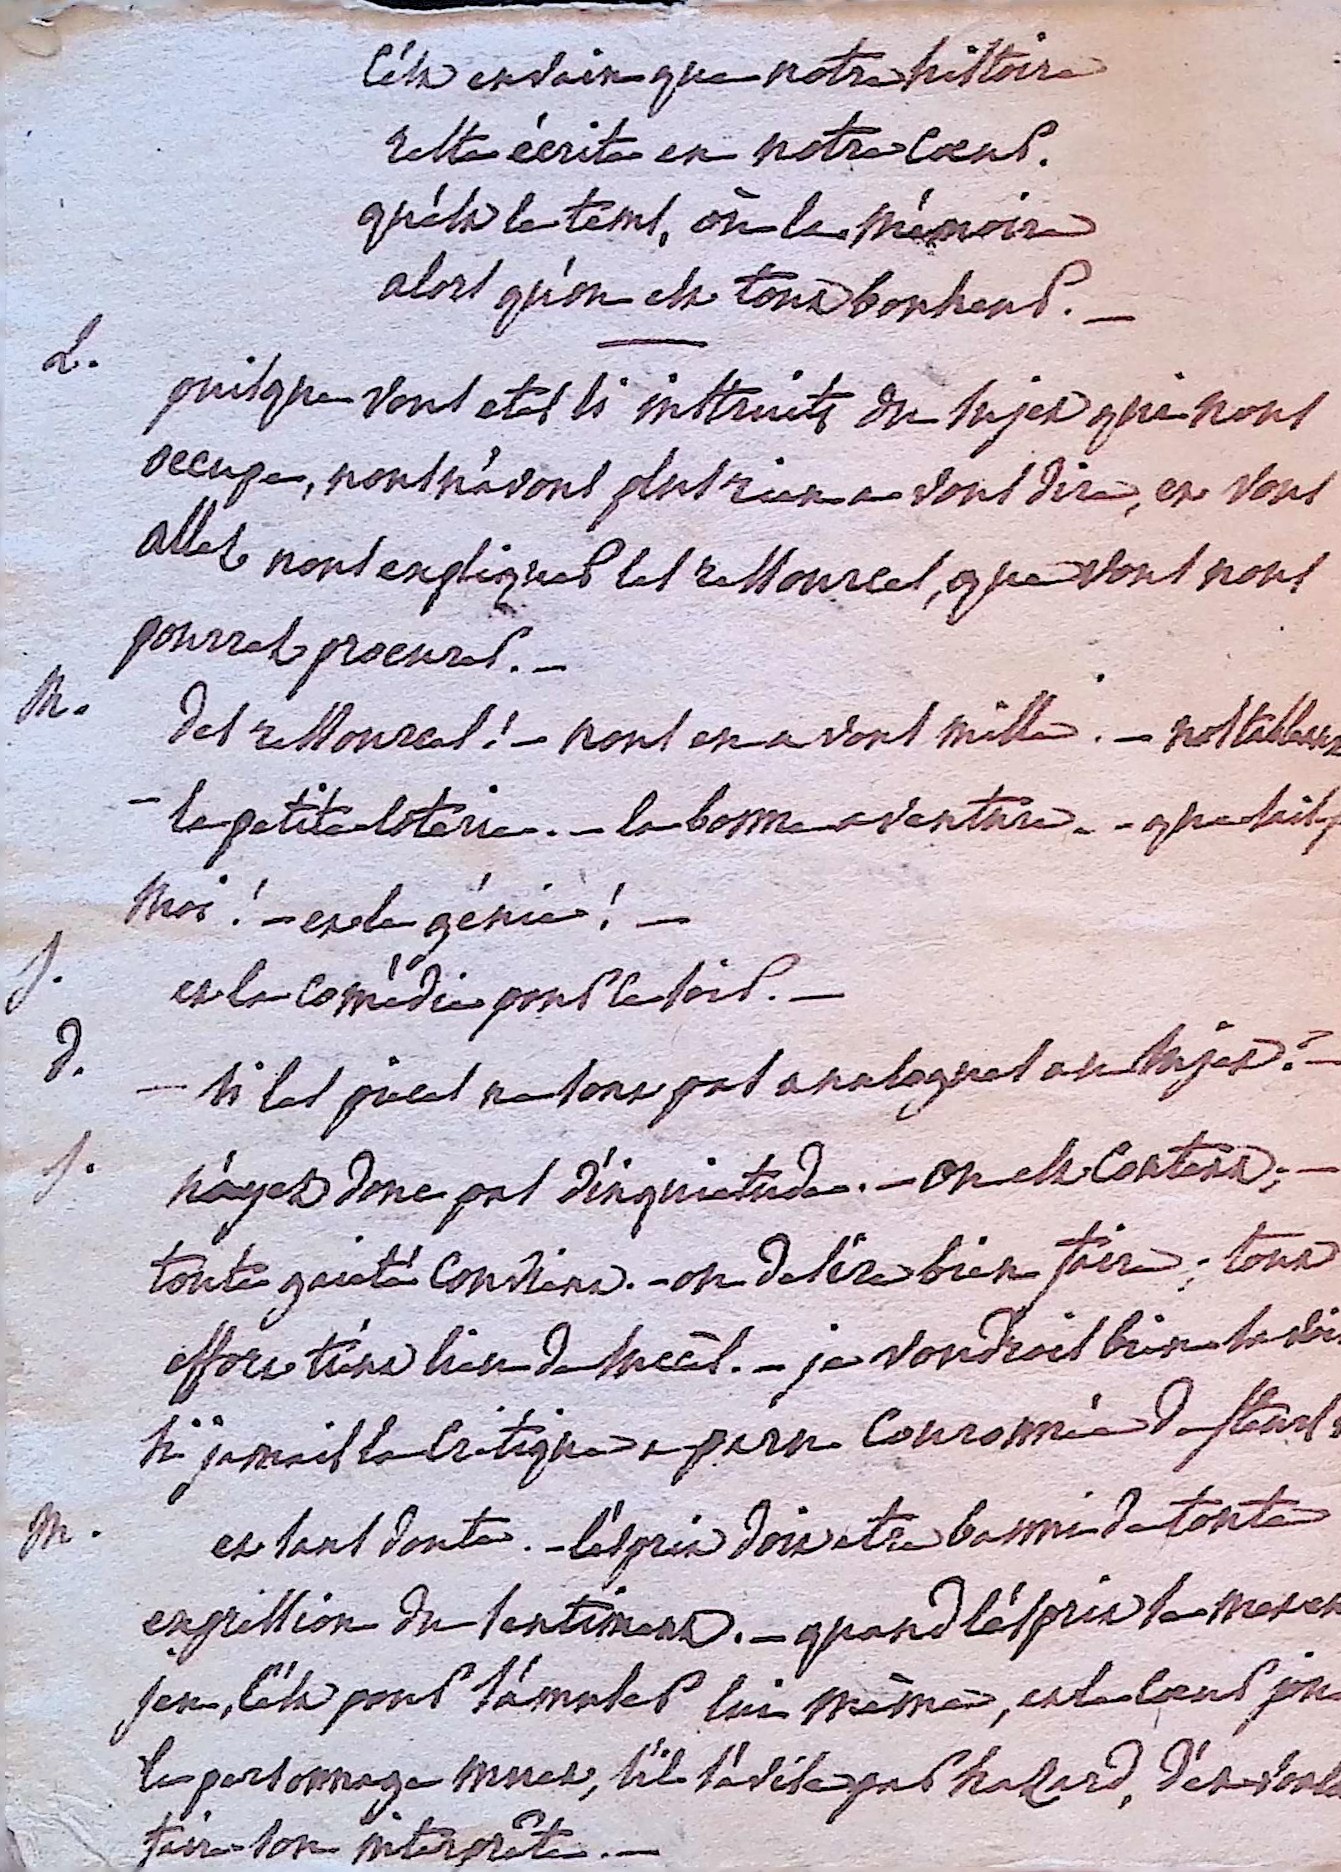 C'est en vain que notre histoire
reste écrite en notre coeur.
qu'est le tems, où la mémoire
alors qu'on est tout bonheur. —
L.
puisque vous etes si instruits du sujet qui nous
occupe, nous n'avons plus rien a vous dire, et vous
allez nous expliquer les ressources, que vous nous
pourrez procurer. —
M.
des ressources! — nous en avons mille. — nos tableaux
— la petite loterie. — la bonne aventure. — que sais je
moi! — et le génie! —
J.
et la comédie pour ce soir. —
D.
— si les pieces ne sont pas analogues au sujet? —
J.
n'ayez donc pas d'inquietude. — on est content; —
toute gaieté convient. — on desire bien faire; tout
effort tient lieu de succès. — je voudrois bien savoir
si jamais la critique a paru couronnée de fleurs
M.
et sans doute. — l'esprit doit etre banni de toute
expression du sentiment. — quand l'ésprit se met en
jeu, c'est pour s'amuser lui mème, et le coeur joue
le personnage muet, s'il s'avise par hazard, d'en vouloir
faire son interprète. —